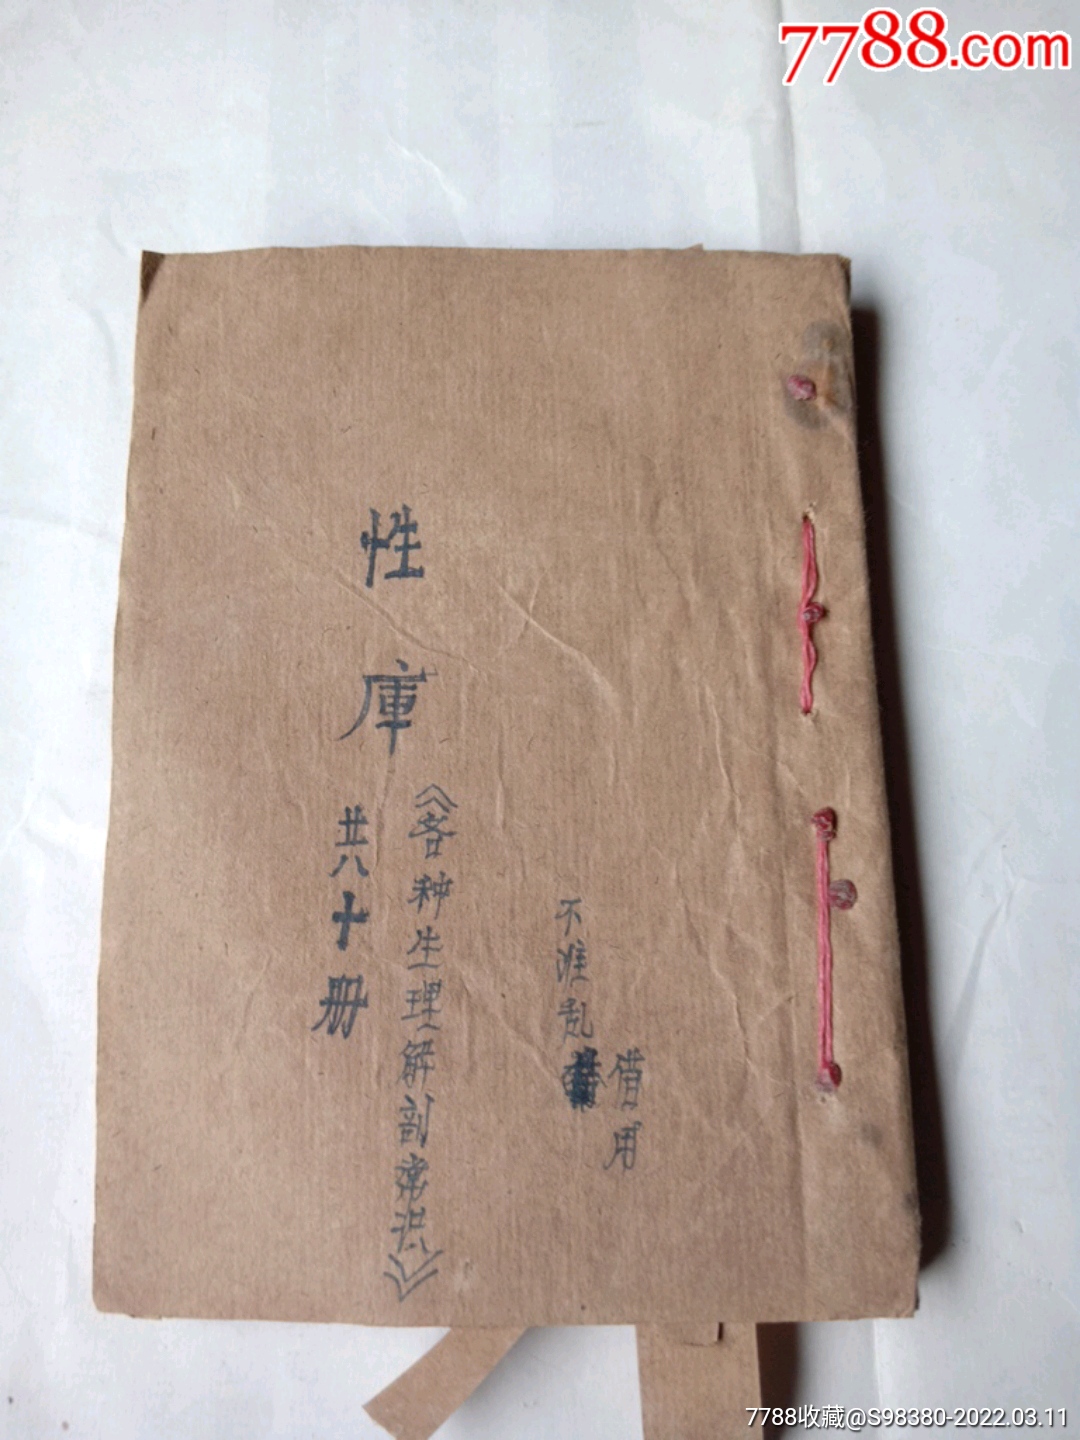 7788.com
性庫
《各种生理解剖常识》
共十册
不准乱
借用
7788收藏@S98380-2022.03.11